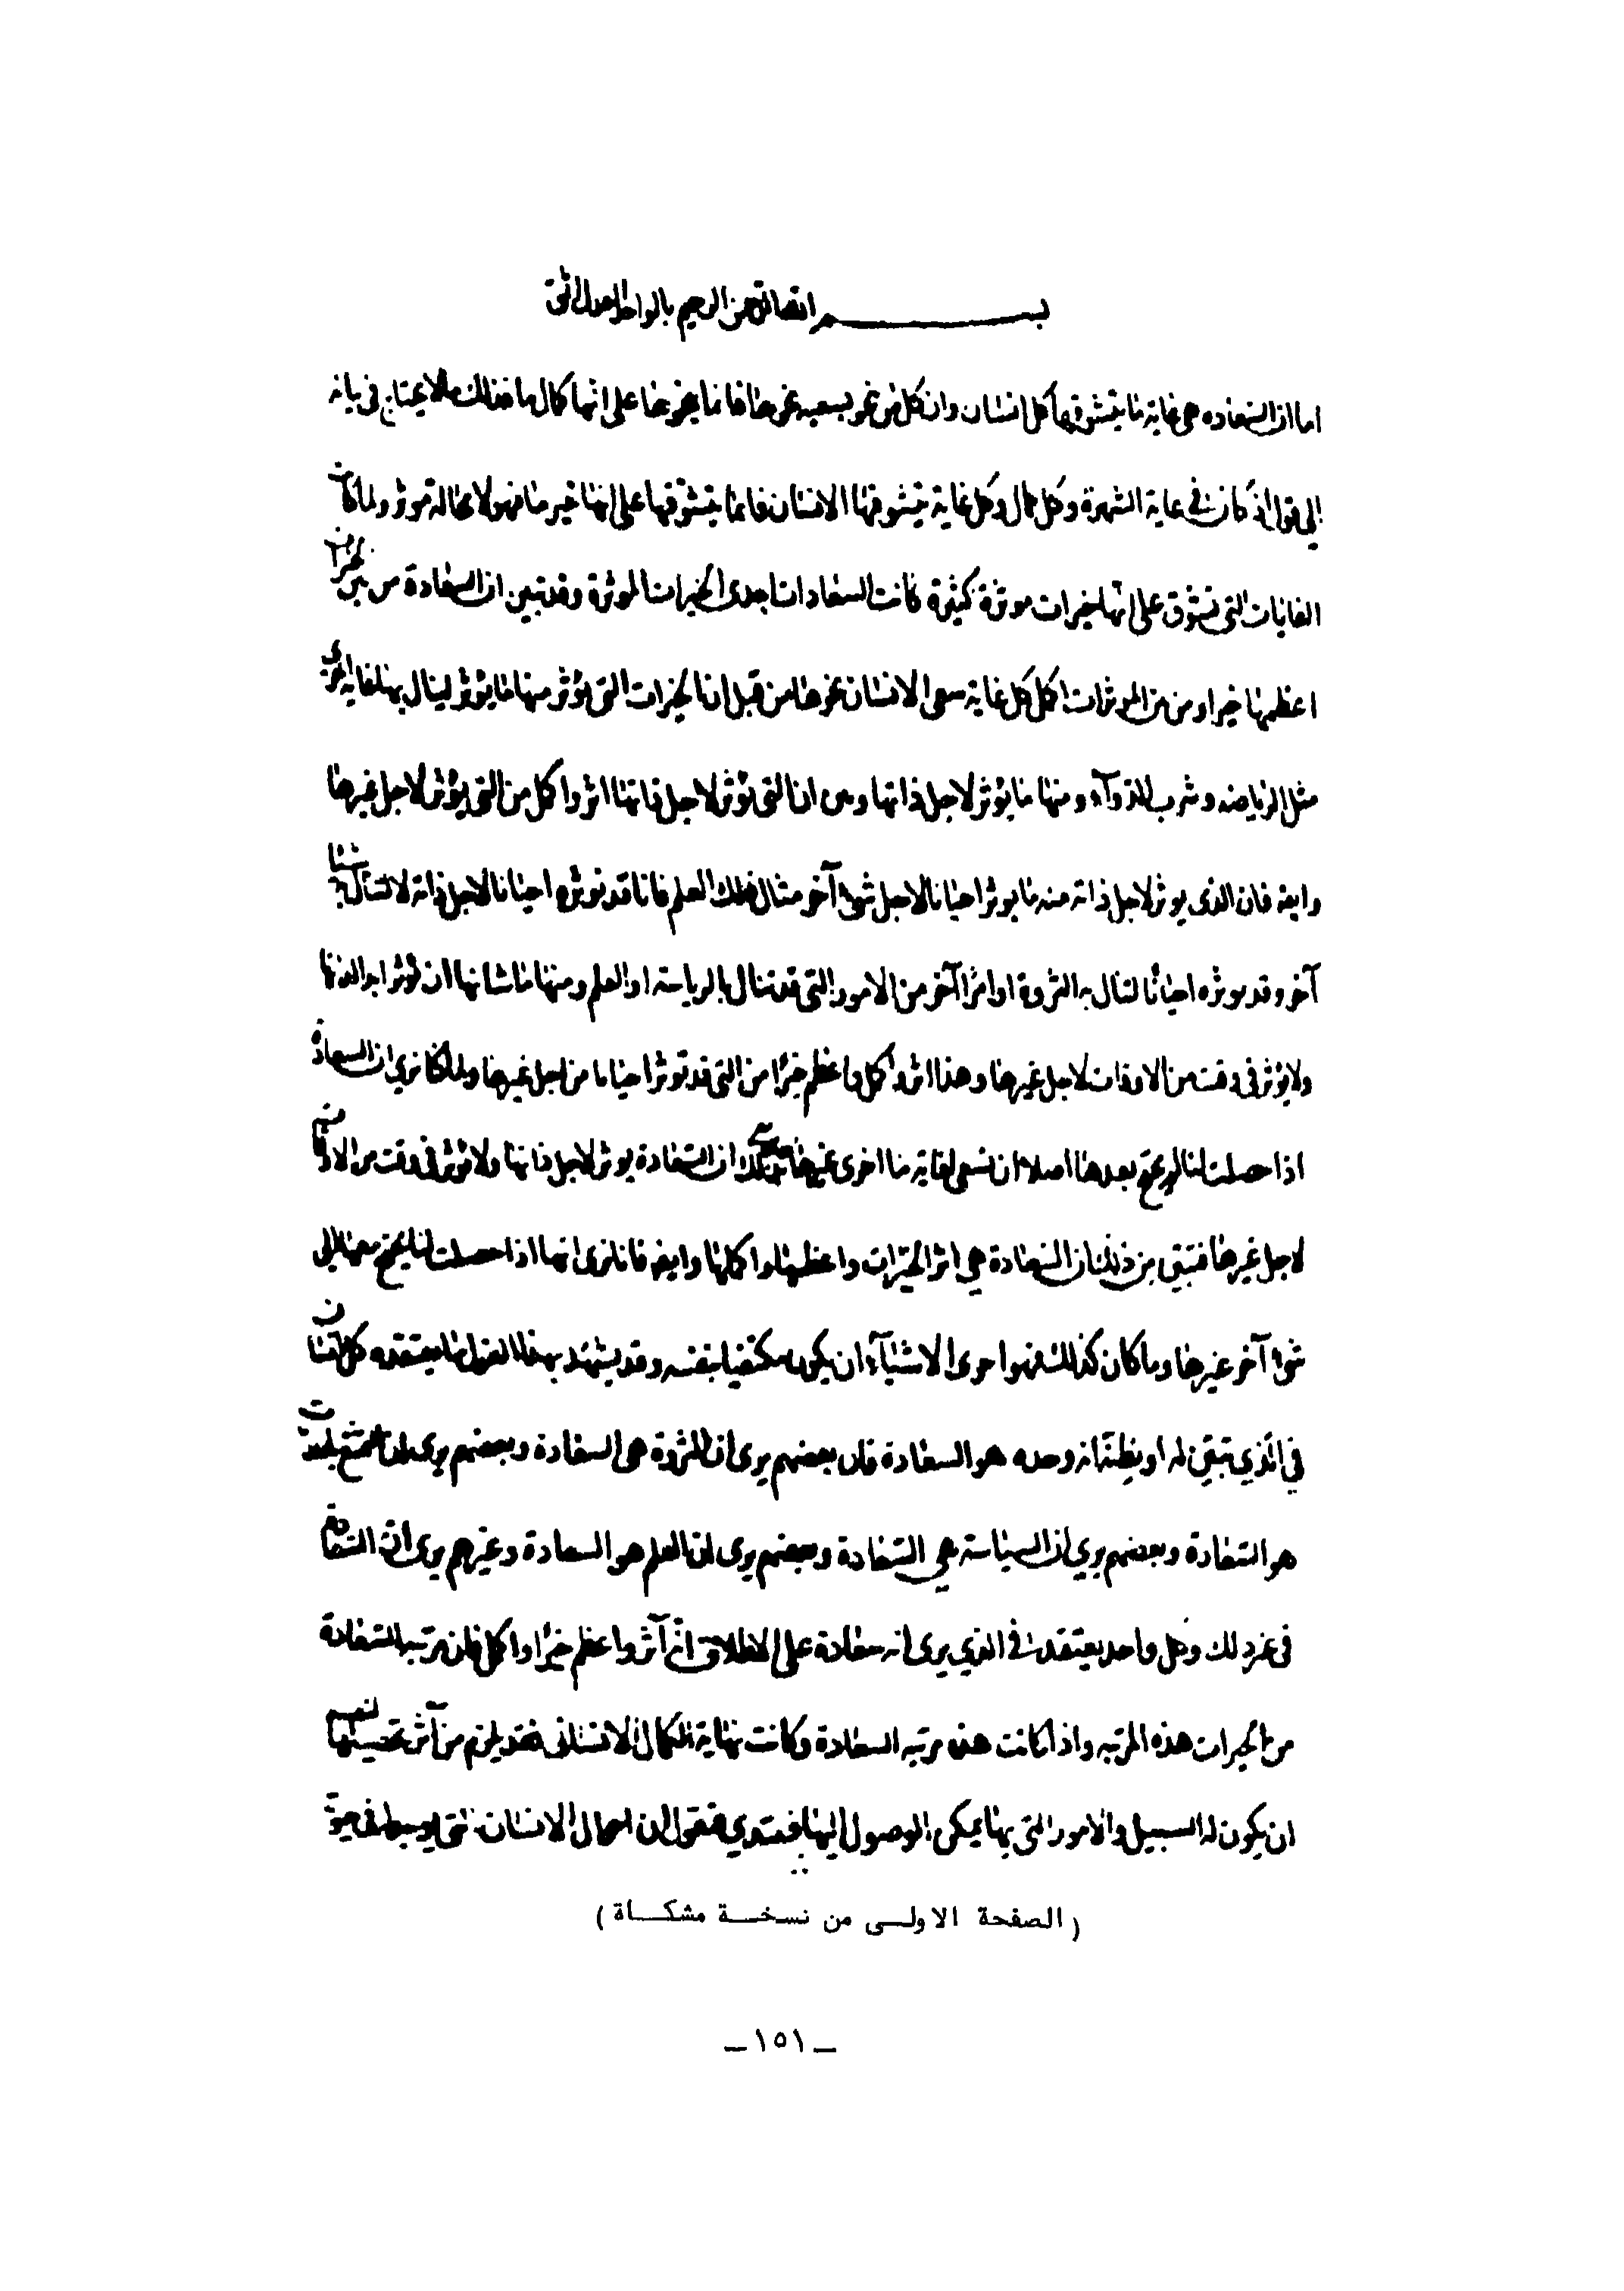 بسم الله الرحمن الرحيم بالواحد العدل اثق
اما ان السعاده هى غاية ما يتشوقها كل انسان وان كل من نحو بسعيه نحوها فانما ينحوها على انها كمال ما فذلك ما لا يحتاج فى بيانه
الى قول اذ كانت في غاية الشهرة وكل كمال وكل غاية يتشوقها الانسان فانما يتشوقها على انها خير ما فهو لا محالة موثر ولما كانت
الغايات التى تشوق على انها خيرات موثرة كثيرة كانت السعادة احدى الخيرات الموثرة وقد تبين ان السعادة من بين الخيرات
اعظمها خيرا ومن بين الموثرات اكمل كل غاية سعى الانسان نحوها من قبل ان الخيرات التى يؤثر منها ما يؤثر لينال بها غاية اخرى
مثل الرياضه وشرب الدوآء ومنها ما يؤثر لاجل ذاتها وبين ان التى تؤثر لاجل ذاتها اثر واكمل من التى يؤثر لاجل غيرها
وايضه فان الذى يوثر لاجل ذاته منه ما يوثر احيانا لاجل شىء آخر مثال ذلك العلم فانا قد نوثره احيانا لاجل ذاته لا لننال به شيئا
آخر وقد نوثره احيانا لننال به الثروة او امرا آخر من الامور التى قد تنال بالرياسة او العلم ومنها ما شانها ان تؤثر ابدا لذاتها
ولا يؤثر فى وقت من الاوقات لاجل غيرها وهذا اثر واكمل واعظم خيرا من التى قد توثر احيانا من اجل غيرها ولما كنا نرى ان السعادة
اذا حصلت لنا لم نحتج بعدها اصلا ان نسعى لغاية ما اخرى غيرها ظهر بذلك ان السعادة يوثر لاجل ذاتها ولا تؤثر فى وقت من الاوقات
لاجل غيرها فتبين من ذلك ان السعادة هي اثر الخيرات واعظمها واكملها وايضه فانا نرى انها اذا حصلت لنا لم نحتج معها الى
شىء آخر غيرها وما كان كذلك فهو احرى الاشيآء ان يكون مكتفيا بنفسه وقد يشهد بهذا القول ما يعتقده كل انسان
في الذي تبين له او يظن انه وحده هو السعادة فان بعضهم يرى ان الثروة هى السعادة وبعضهم يرى ان التمتع بلذات
هو السعادة وبعضهم يرى ان السياسة هي السعادة وبعضهم يرى ان العلم هو السعادة وغيرهم يرى ان السعادة
فى غير ذلك وكل واحد يعتقد فى الذي يرى انه سعادة على الاطلاق انه آثر واعظم خيرا واكمل فان مرتبه السعادة
من الخيرات هذه المرتبه واذا كانت هذه مرتبه السعادة وكانت نهاية الكمال الانسانى فقد يلزم من آثر تحصيلها لنفسه
ان يكون له السبيل والامور التى بها يمكن الوصول اليها فنبتدي فنقول ان احوال الانسان التى
( الصفحة الاولـى من نسخـة مشكـاة )
ـ ١٥١ ـ